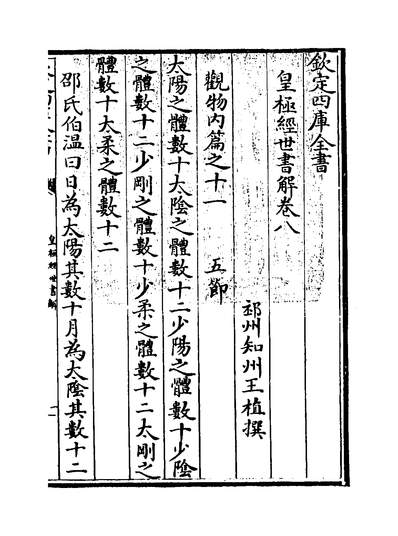 欽定四庫全書
皇極經世書解卷八
祁州知州王植撰
觀物內篇之十一　五節
太陽之體數十太陰之體數十二少陽之體數十少陰
之體數十二少剛之體數十少柔之體數十二太剛之
體數十太柔之體數十二
邵氏伯溫曰日為太陽其數十月為太陰其數十二
皇極經世書解